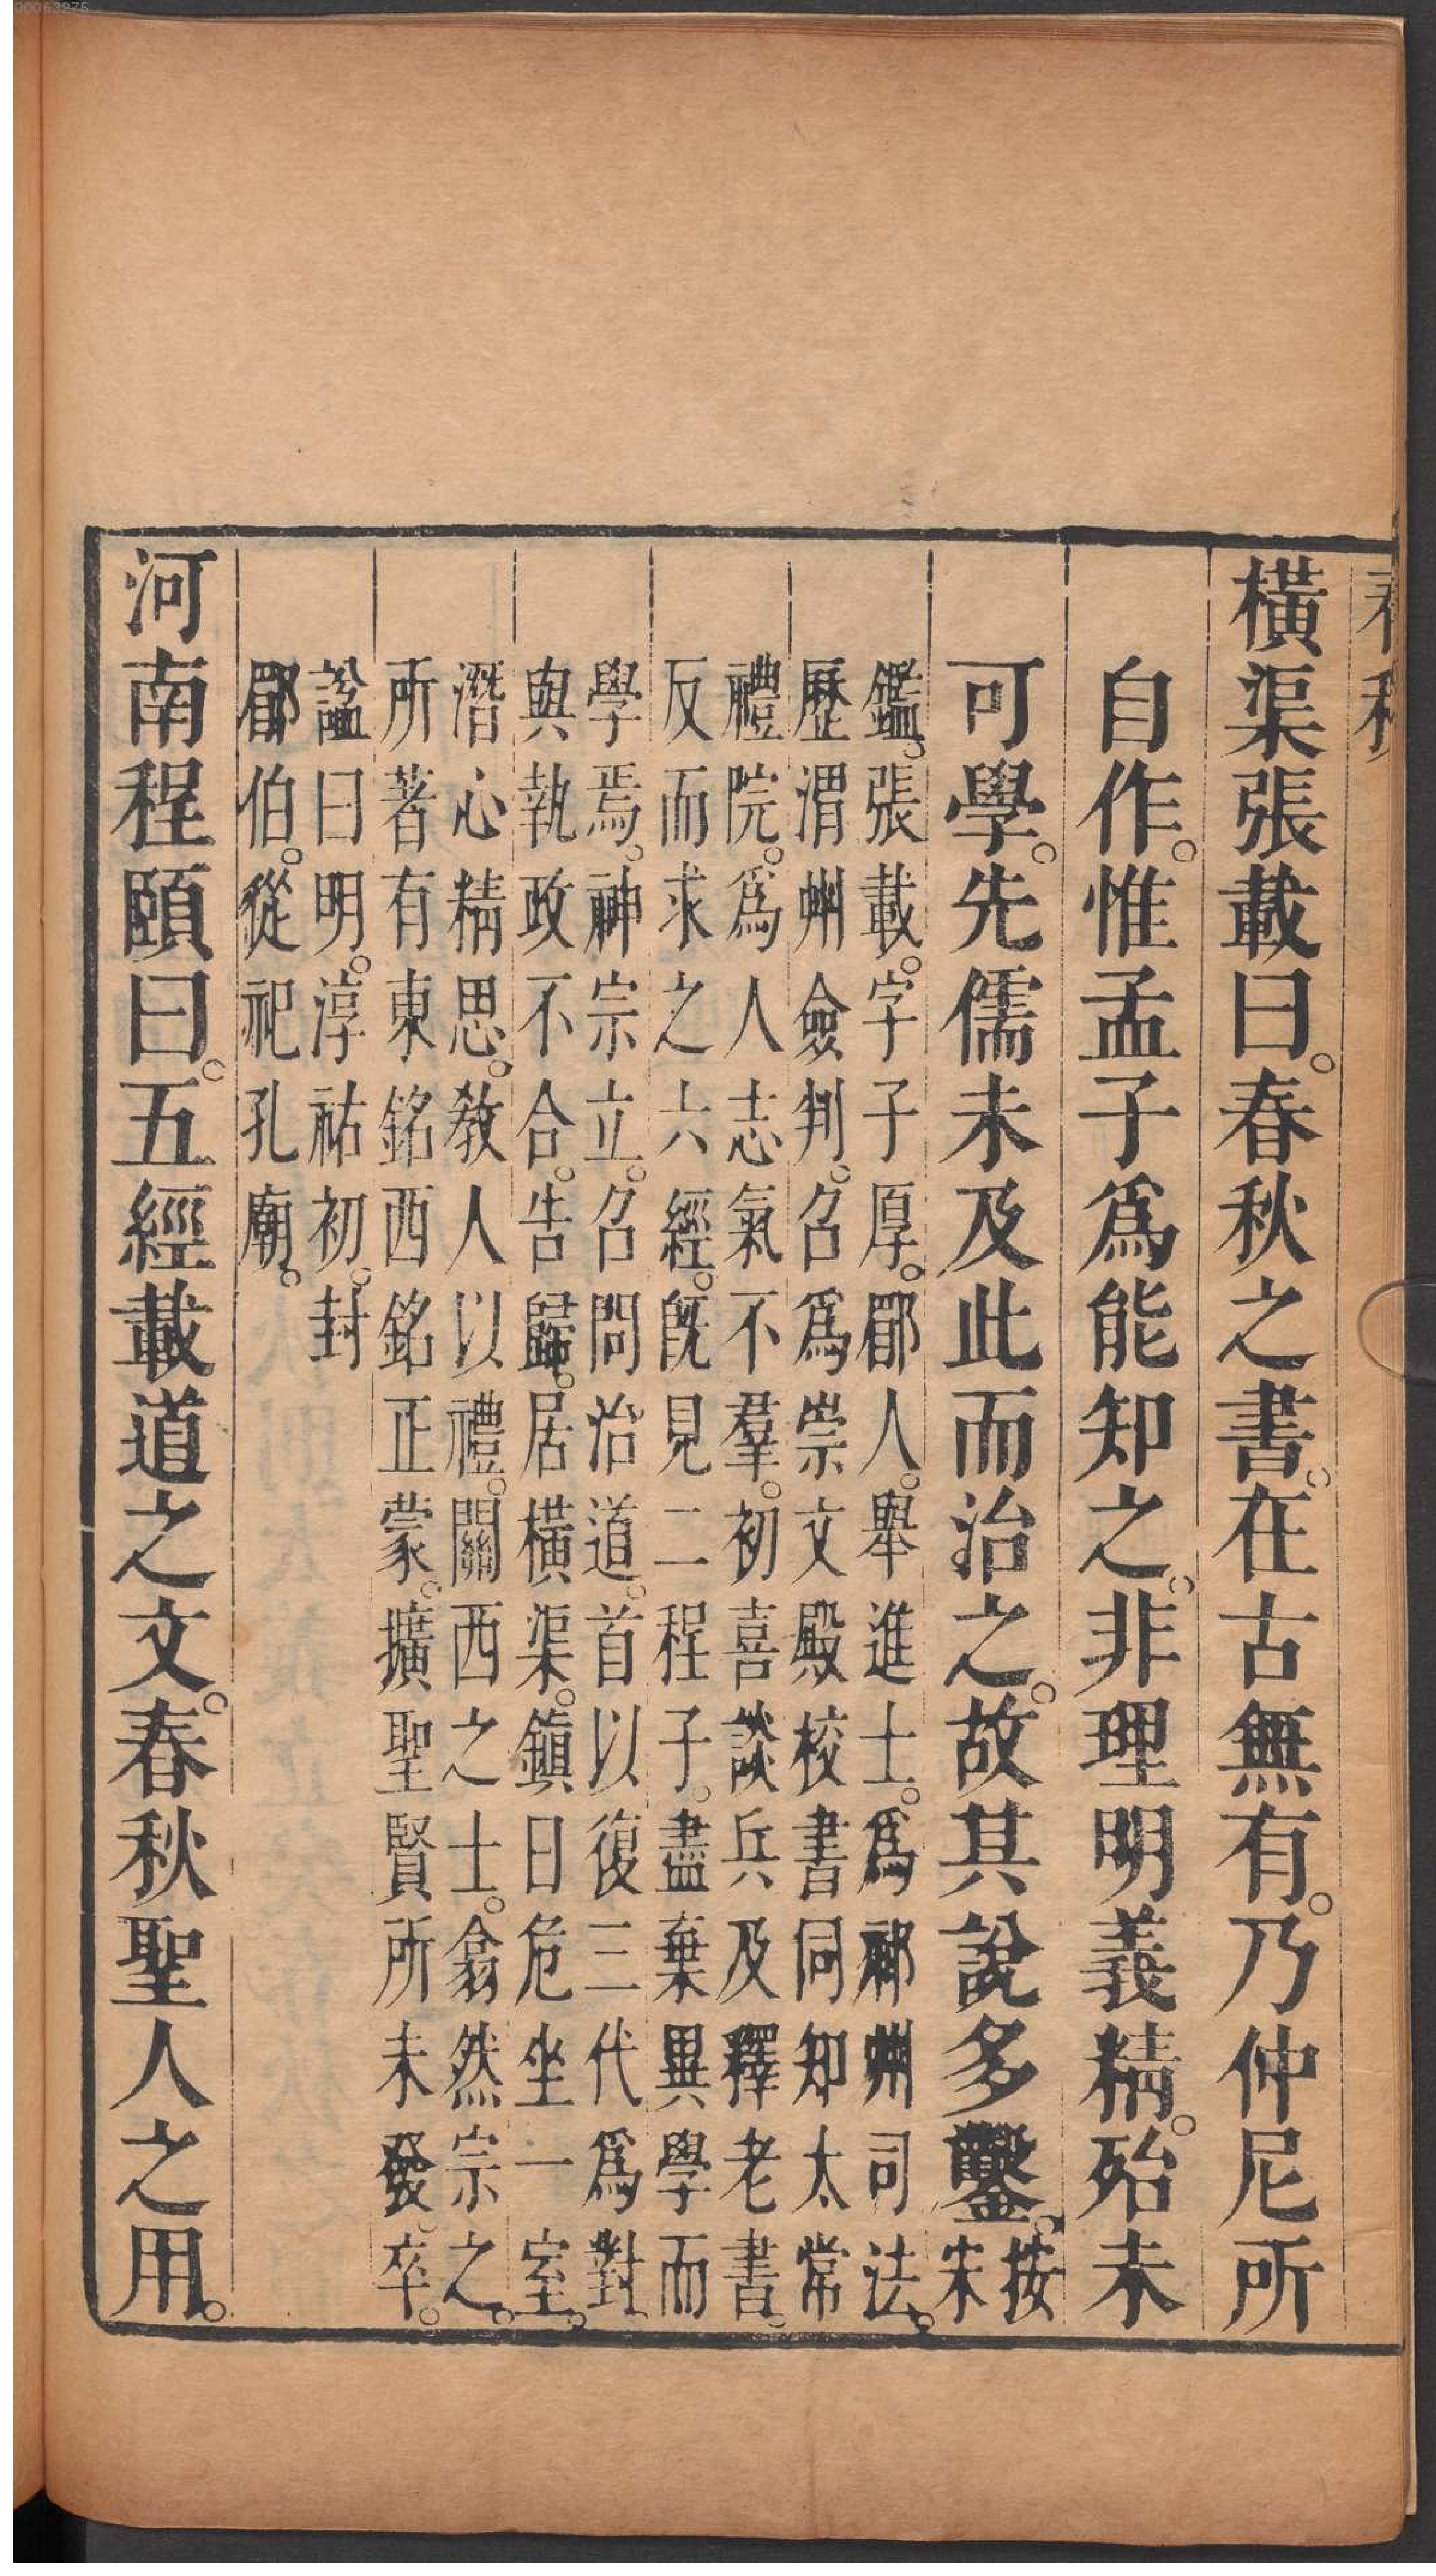 春秋
橫渠張載曰。春秋之書。在古無有。乃仲尼所
自作。惟孟子爲能知之。非理明義精。殆未
可學。先儒未及此而治之。故其說多鑿。按
宋
鑑。張載。字子厚。郿人。舉進士。爲祁州司法。
歷渭州僉判。召爲崇文殿校書同知太常
禮院。爲人志氣不羣。初喜談兵及釋老書。
反而求之六經。旣見二程子。盡棄異學而
學焉。神宗立。召問治道。首以復三代爲對
與執政不合。告歸。居橫渠。鎭日危坐一室。
潛心精思。敎人以禮。關西之士。翕然宗之。
所著有東銘西銘正蒙。擴聖賢所未發。卒。
謚曰明。淳祐初。封
郿伯。從祀孔廟。
河南程頤曰。五經載道之文。春秋聖人之用。